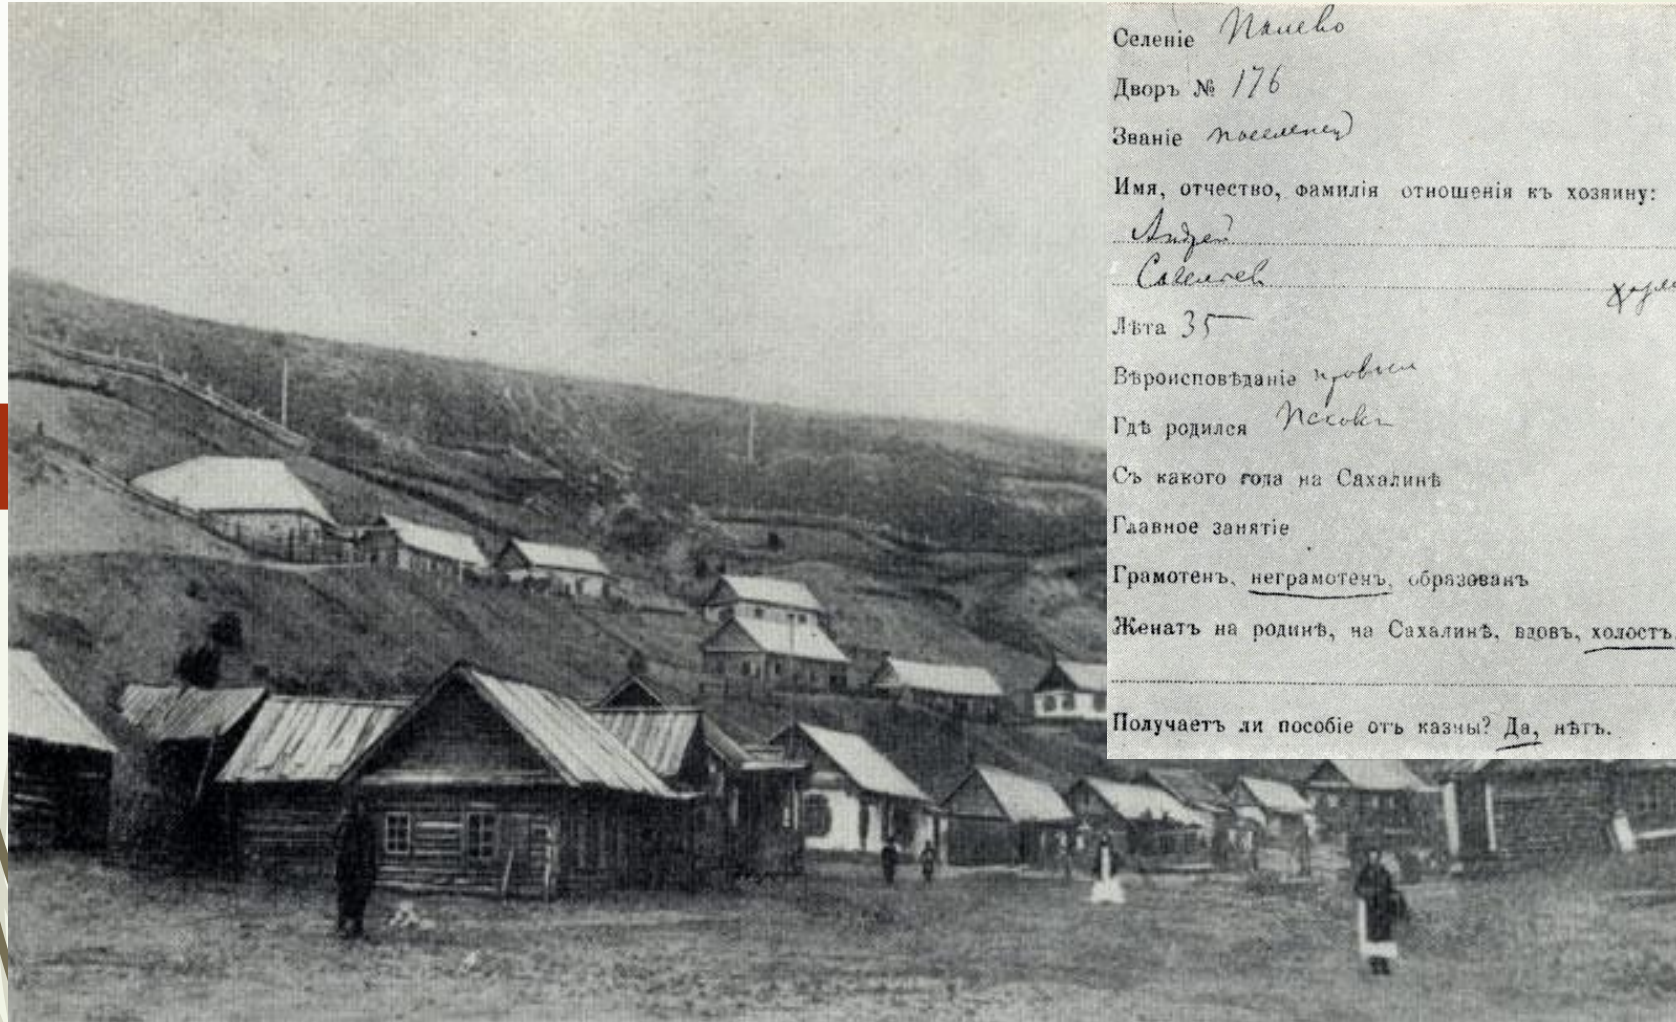 Селеніе Палево
Дворъ № 176
Званіе поселенец
Имя, отчество, фамилія отношенія къ хозяину:
Андрей
Савельев
Лѣта 35
Вѣроисповѣданіе правосл
Гдѣ родился Псков
Съ какого года на Сахалинѣ
Главное занятіе
Грамотенъ, неграмотенъ, образованъ
Женатъ на родинѣ, на Сахалинѣ, вдовъ, холостъ
Получаетъ ли пособіе отъ казны? Да, нѣтъ.